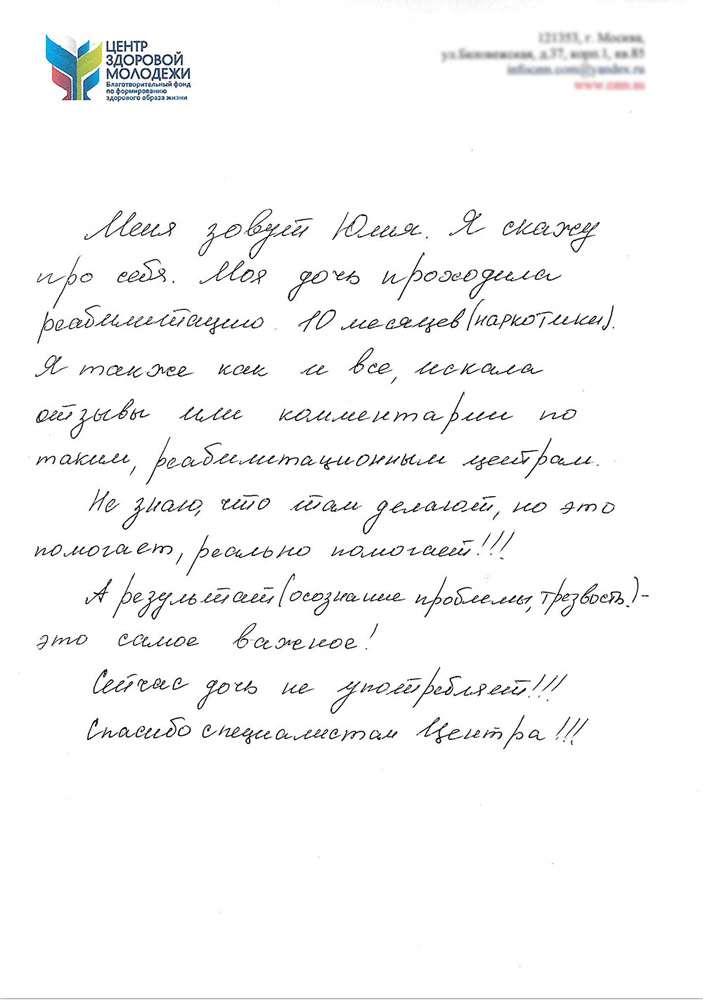 ЦЕНТР
ЗДОРОВОЙ
МОЛОДЕЖИ
Благотворительный фонд
по формированию
здорового образа жизни
121353, г. Москва,
ул.Беловежская, д.37, корп.1, кв.85
Меня зовут Юлия. Я скажу
про себя. Моя дочь проходила
реабилитацию. 10 месяцев (наркотики).
Я также как и все, искала
отзывы или комментарии по
таким, реабилитационным центрам.
Не знаю, что там делают, но это
помогает, реально помогает!!!
А результат (осознание проблемы, трезвость.)-
это самое важное!
Сейчас дочь не употребляет!!!
Спасибо специалистам Центра!!!